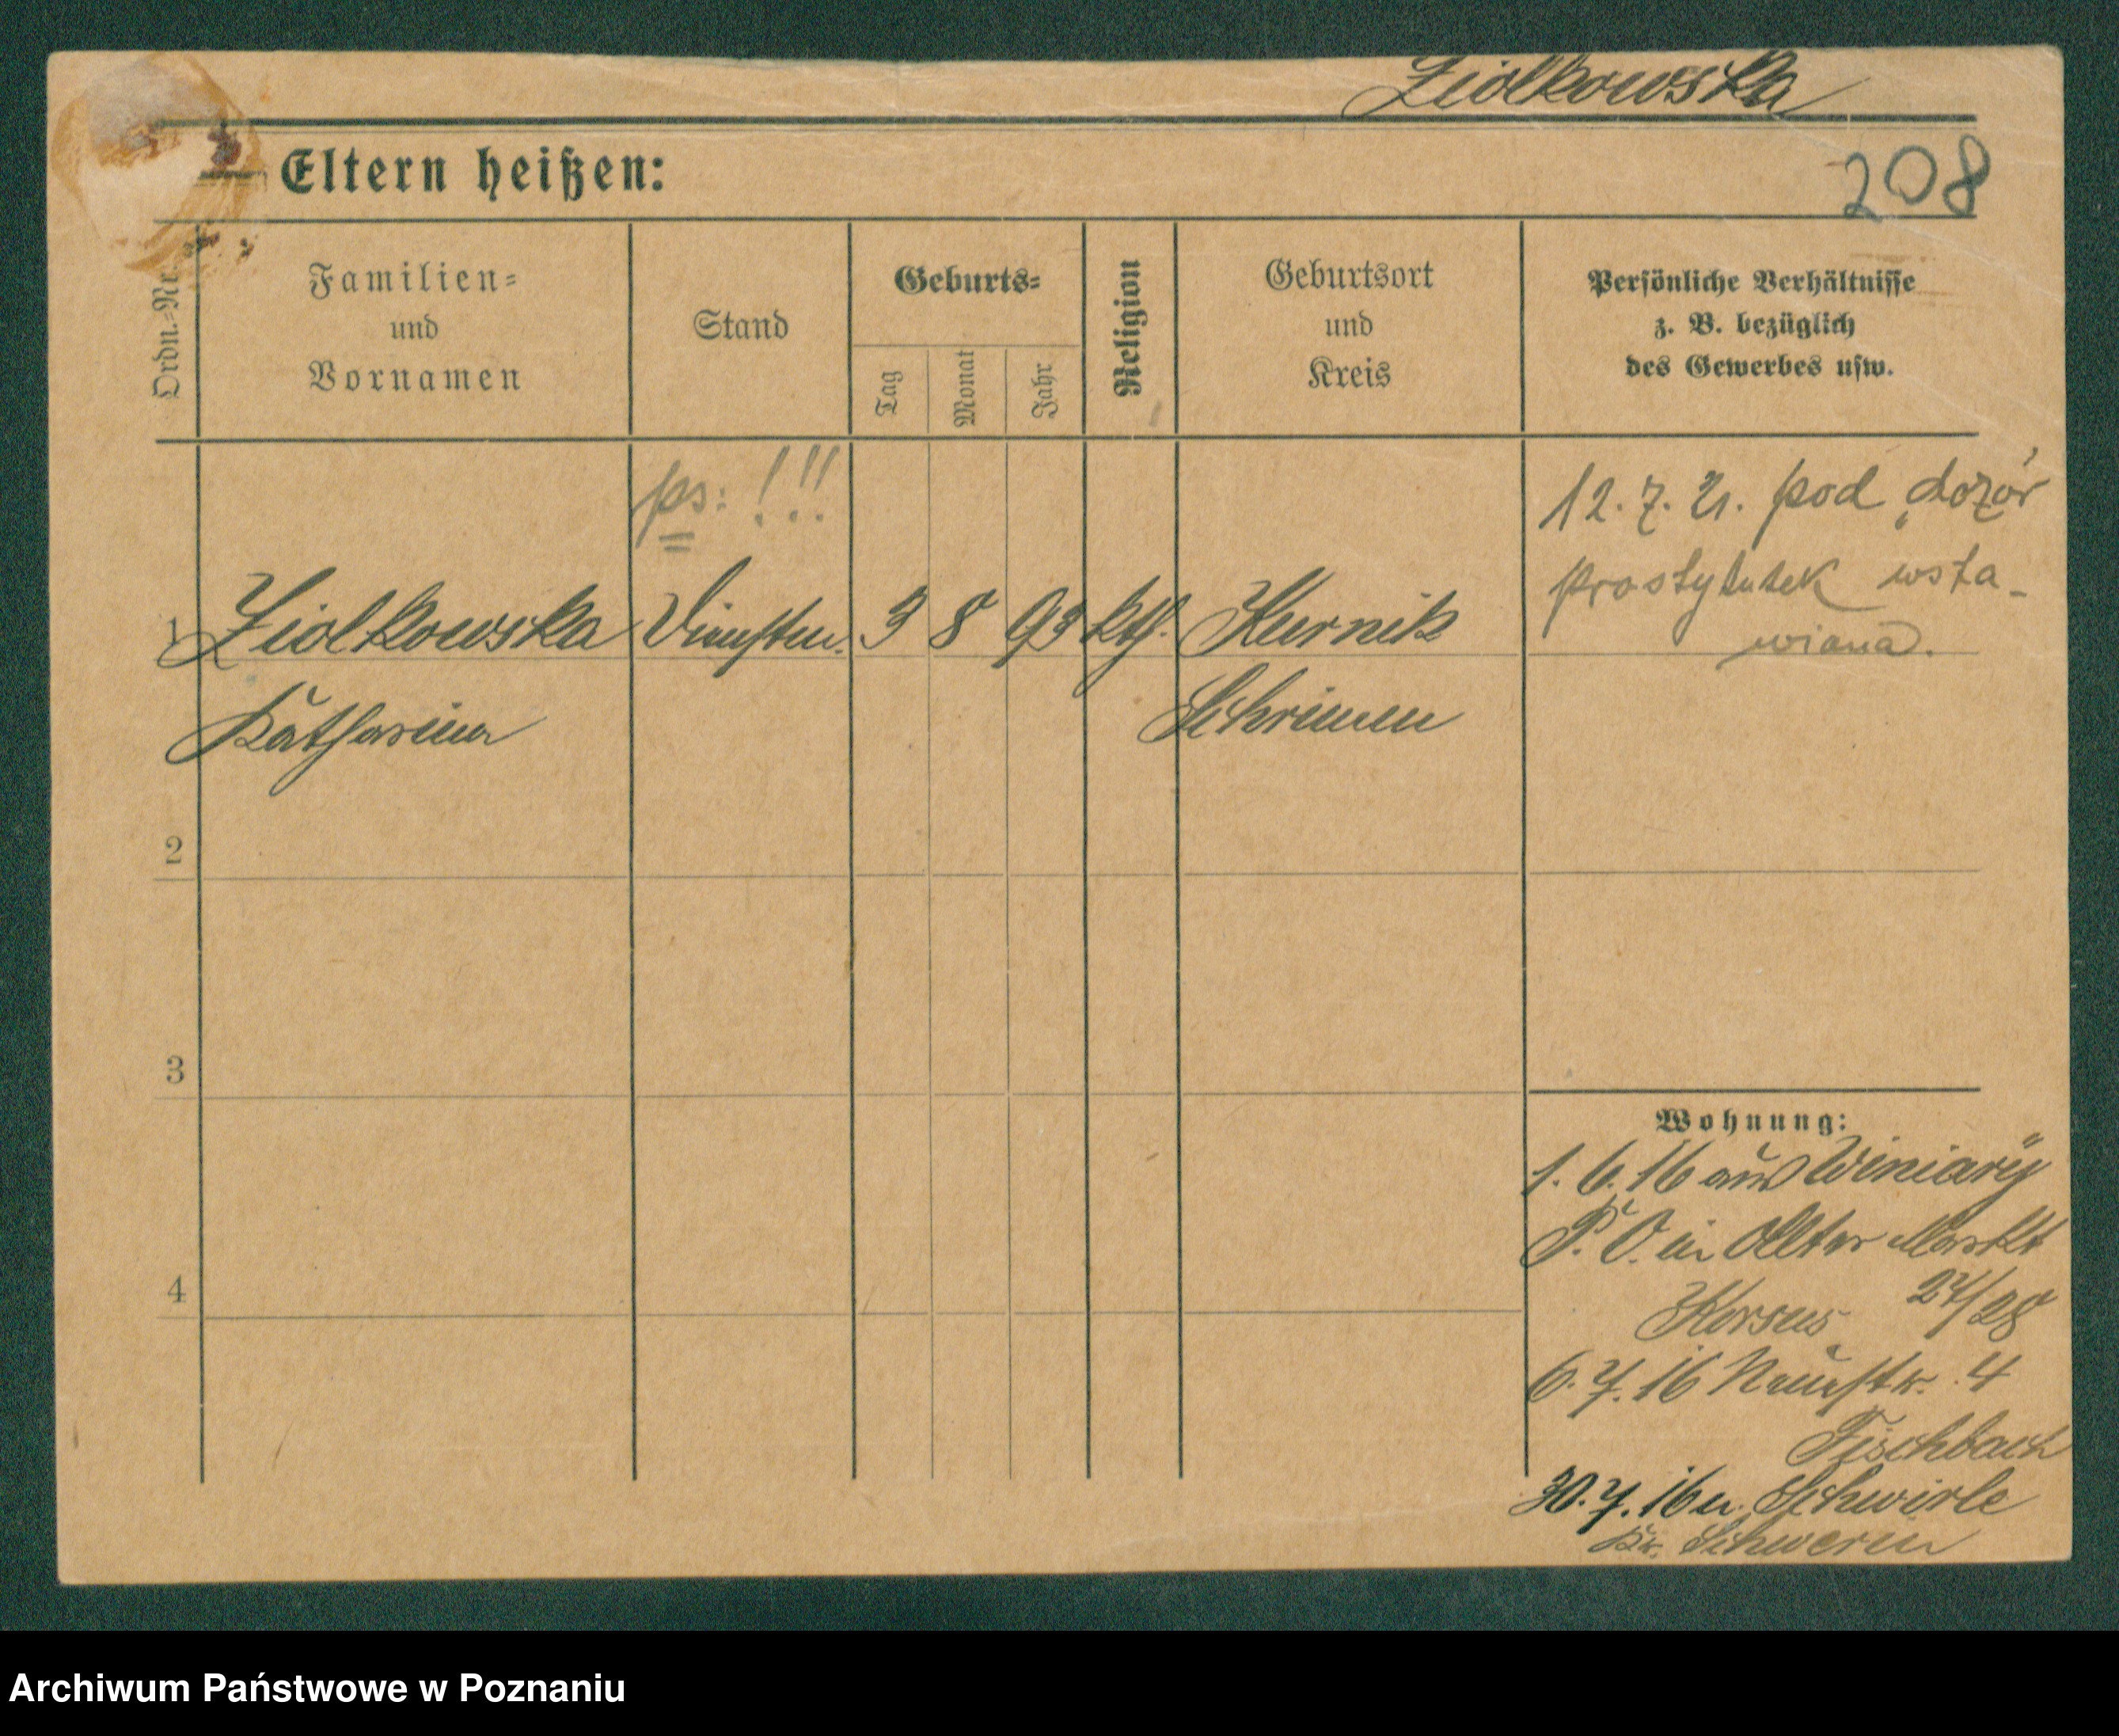 Ziolkowska
Eltern heißen:
208
Ordn.-Nr.
Familien-
und
Vornamen
Stand
Geburts-
Tag
Monat
Jahr
Religion
Geburtsort
und
Kreis
Persönliche Verhältnisse
z. B. bezüglich
des Gewerbes usw.
ps: !!!
12. 7. 21. pod dozór
prostytutek wsta-
wiana.
1 Ziolkowska
3 8 93 kth. Kurnik
Katharina
Schrimm
2
3
4
Wohnung:
1. 6. 16 aus Winiary
P. O. in Alter Markt
27/28
6. 7. 16 Neuestr. 4
Fischbach
30. 7. 16 n. Schwirle
Kr. Schwerin
Archiwum Państwowe w Poznaniu